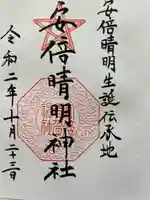 安倍晴明生誕伝承地
安倍晴明神社
令和二年十月二十三日